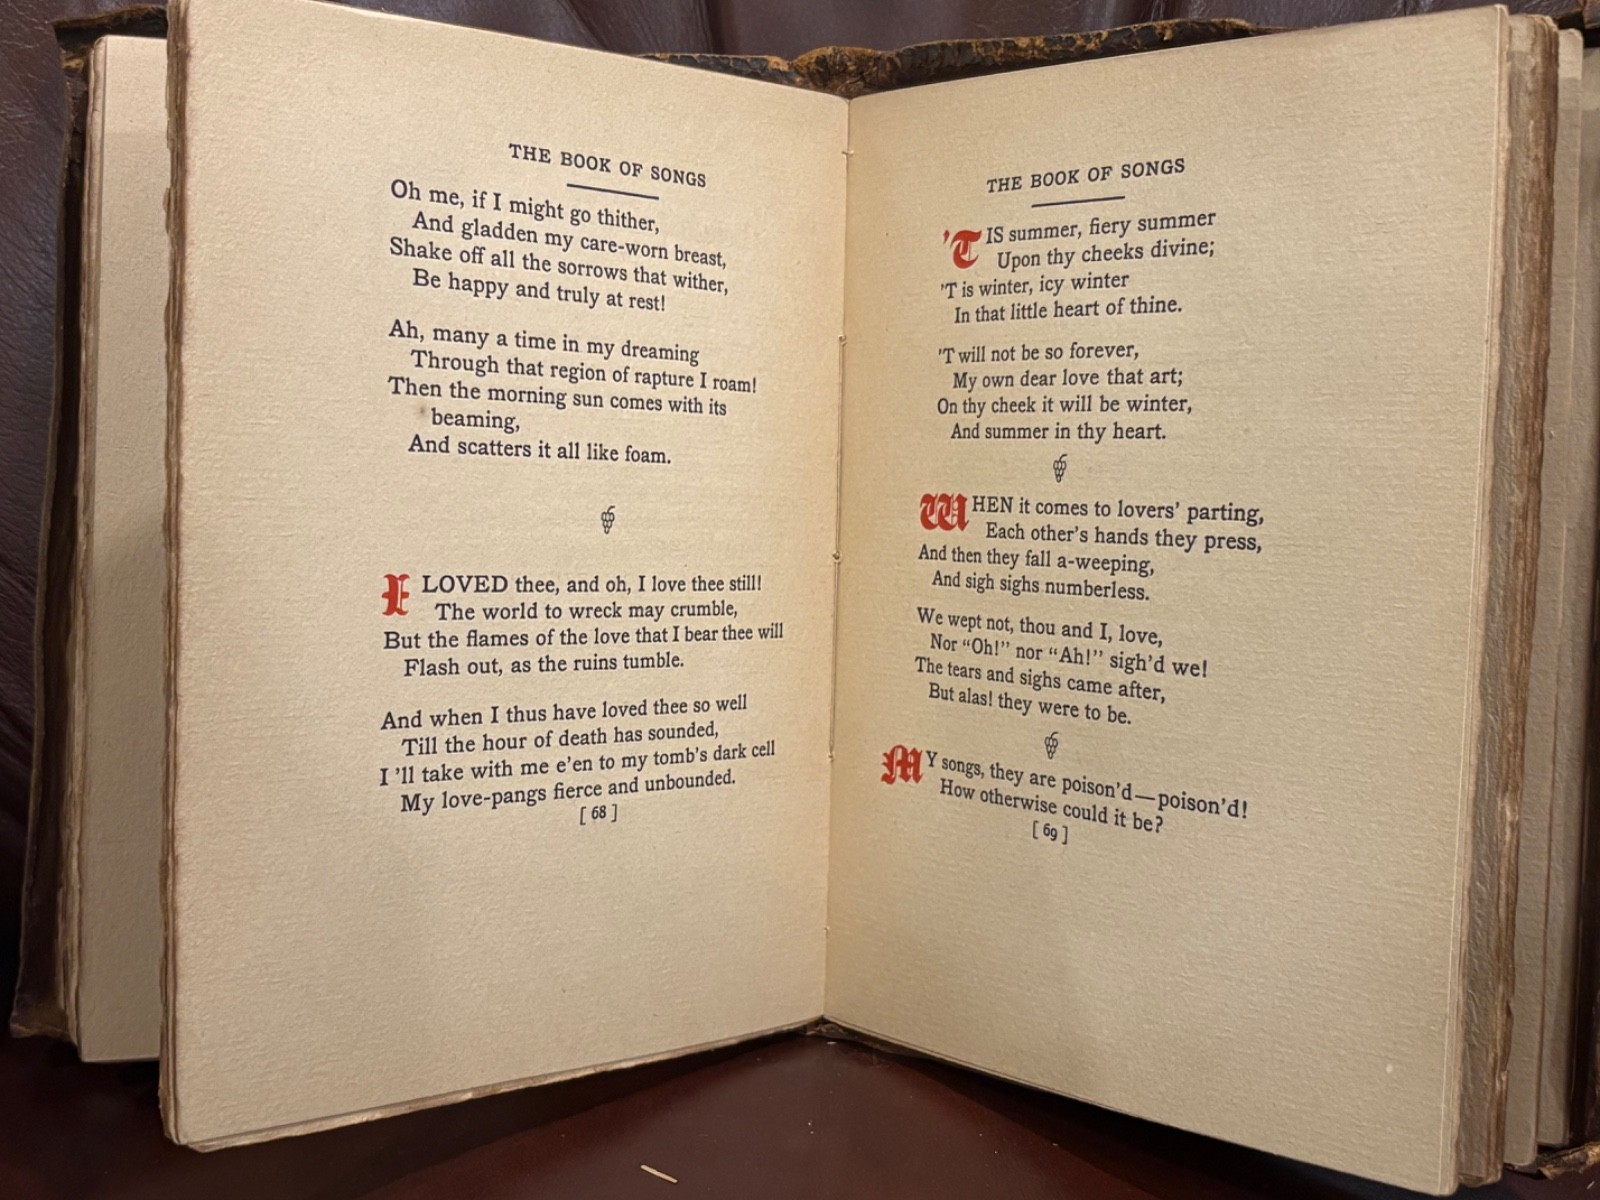 THE BOOK OF SONGS
Oh me, if I might go thither,
And gladden my care-worn breast,
Shake off all the sorrows that wither,
Be happy and truly at rest!
Ah, many a time in my dreaming
Through that region of rapture I roam!
Then the morning sun comes with its
beaming,
And scatters it all like foam.
I LOVED thee, and oh, I love thee still!
The world to wreck may crumble,
But the flames of the love that I bear thee will
Flash out, as the ruins tumble.
And when I thus have loved thee so well
Till the hour of death has sounded,
I 'll take with me e'en to my tomb's dark cell
My love-pangs fierce and unbounded.
[ 68 ]
THE BOOK OF SONGS
'TIS summer, fiery summer
Upon thy cheeks divine;
'T is winter, icy winter
In that little heart of thine.
'T will not be so forever,
My own dear love that art;
On thy cheek it will be winter,
And summer in thy heart.
WHEN it comes to lovers' parting,
Each other's hands they press,
And then they fall a-weeping,
And sigh sighs numberless.
We wept not, thou and I, love,
Nor "Oh!" nor "Ah!" sigh'd we!
The tears and sighs came after,
But alas! they were to be.
MY songs, they are poison'd—poison'd!
How otherwise could it be?
[ 69 ]